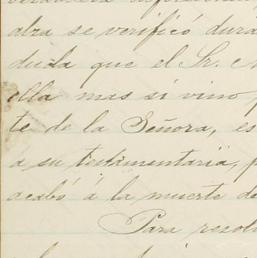 alza se verificó dura
duda que el Sr. A
ella mas si vino
te de la Señora, es
á su testimentaria, p
acabó á la muerte de
Para resol